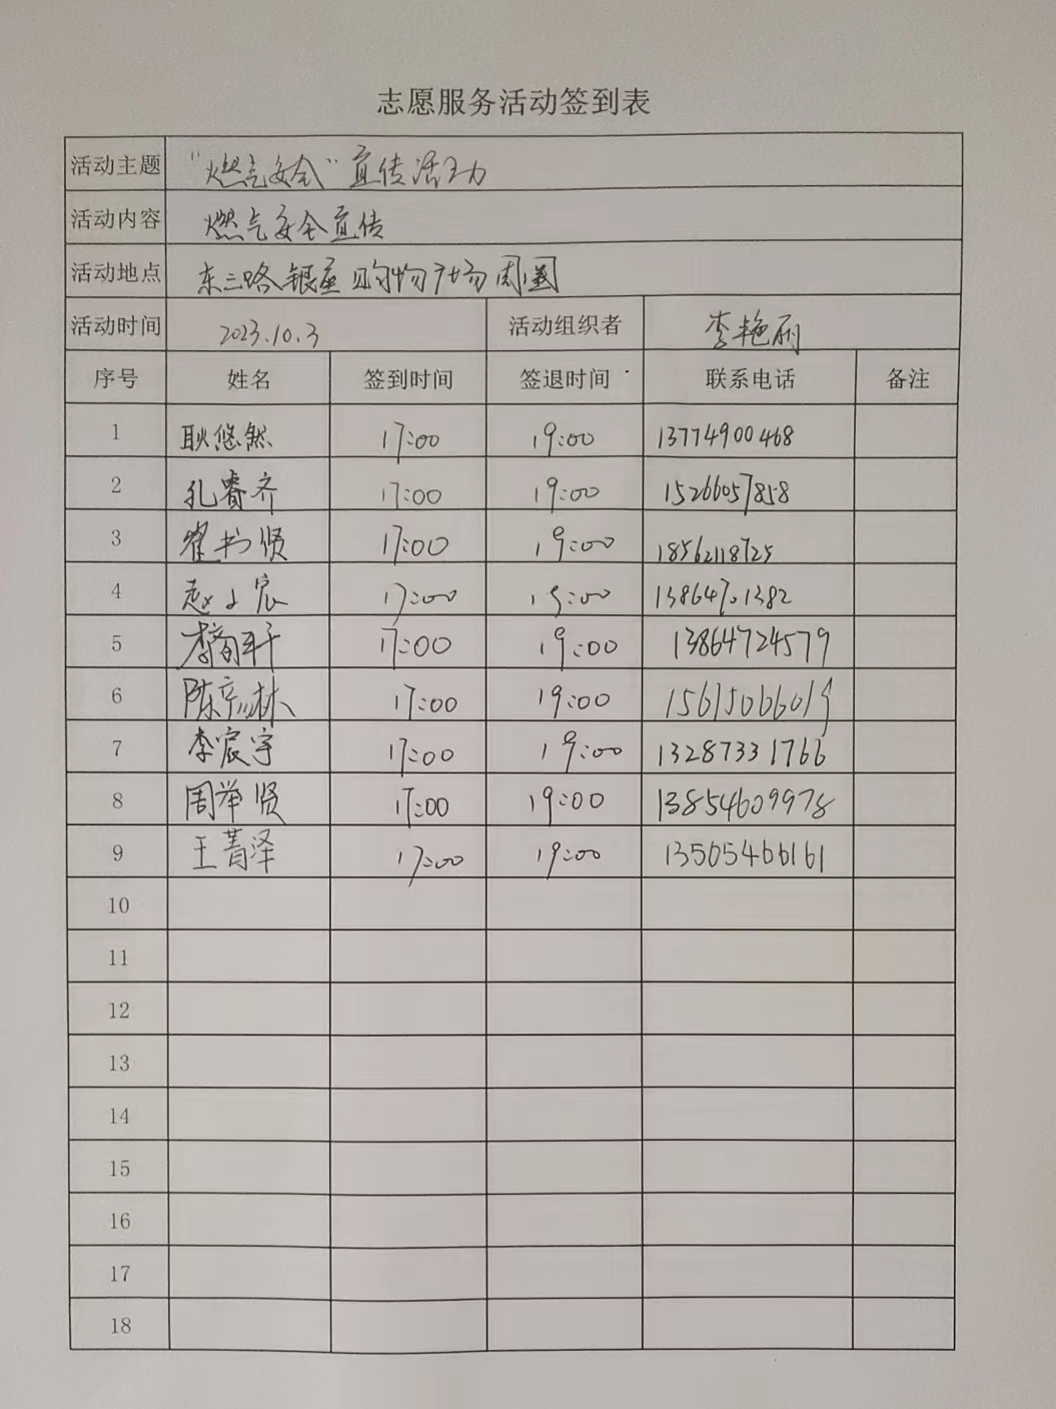 志愿服务活动签到表
活动主题 "燃气安全"宣传活动
活动内容 燃气安全宣传
活动地点 东三路银座购物广场周围
活动时间 2023.10.3 活动组织者 李艳丽
序号 姓名 签到时间 签退时间 联系电话 备注
1 耿悠然 17:00 19:00 13774900468
2 孔睿齐 17:00 19:00 15266057858
3 翟书贤 17:00 19:00 18562118725
4 赵子宸 17:00 19:00 13864701382
5 李荀轩 17:00 19:00 13864724579
6 陈彦霖 17:00 19:00 15615066019
7 李宸宇 17:00 19:00 13287331766
8 周举贤 17:00 19:00 13854609978
9 王菁泽 17:00 19:00 13505466161
10
11
12
13
14
15
16
17
18